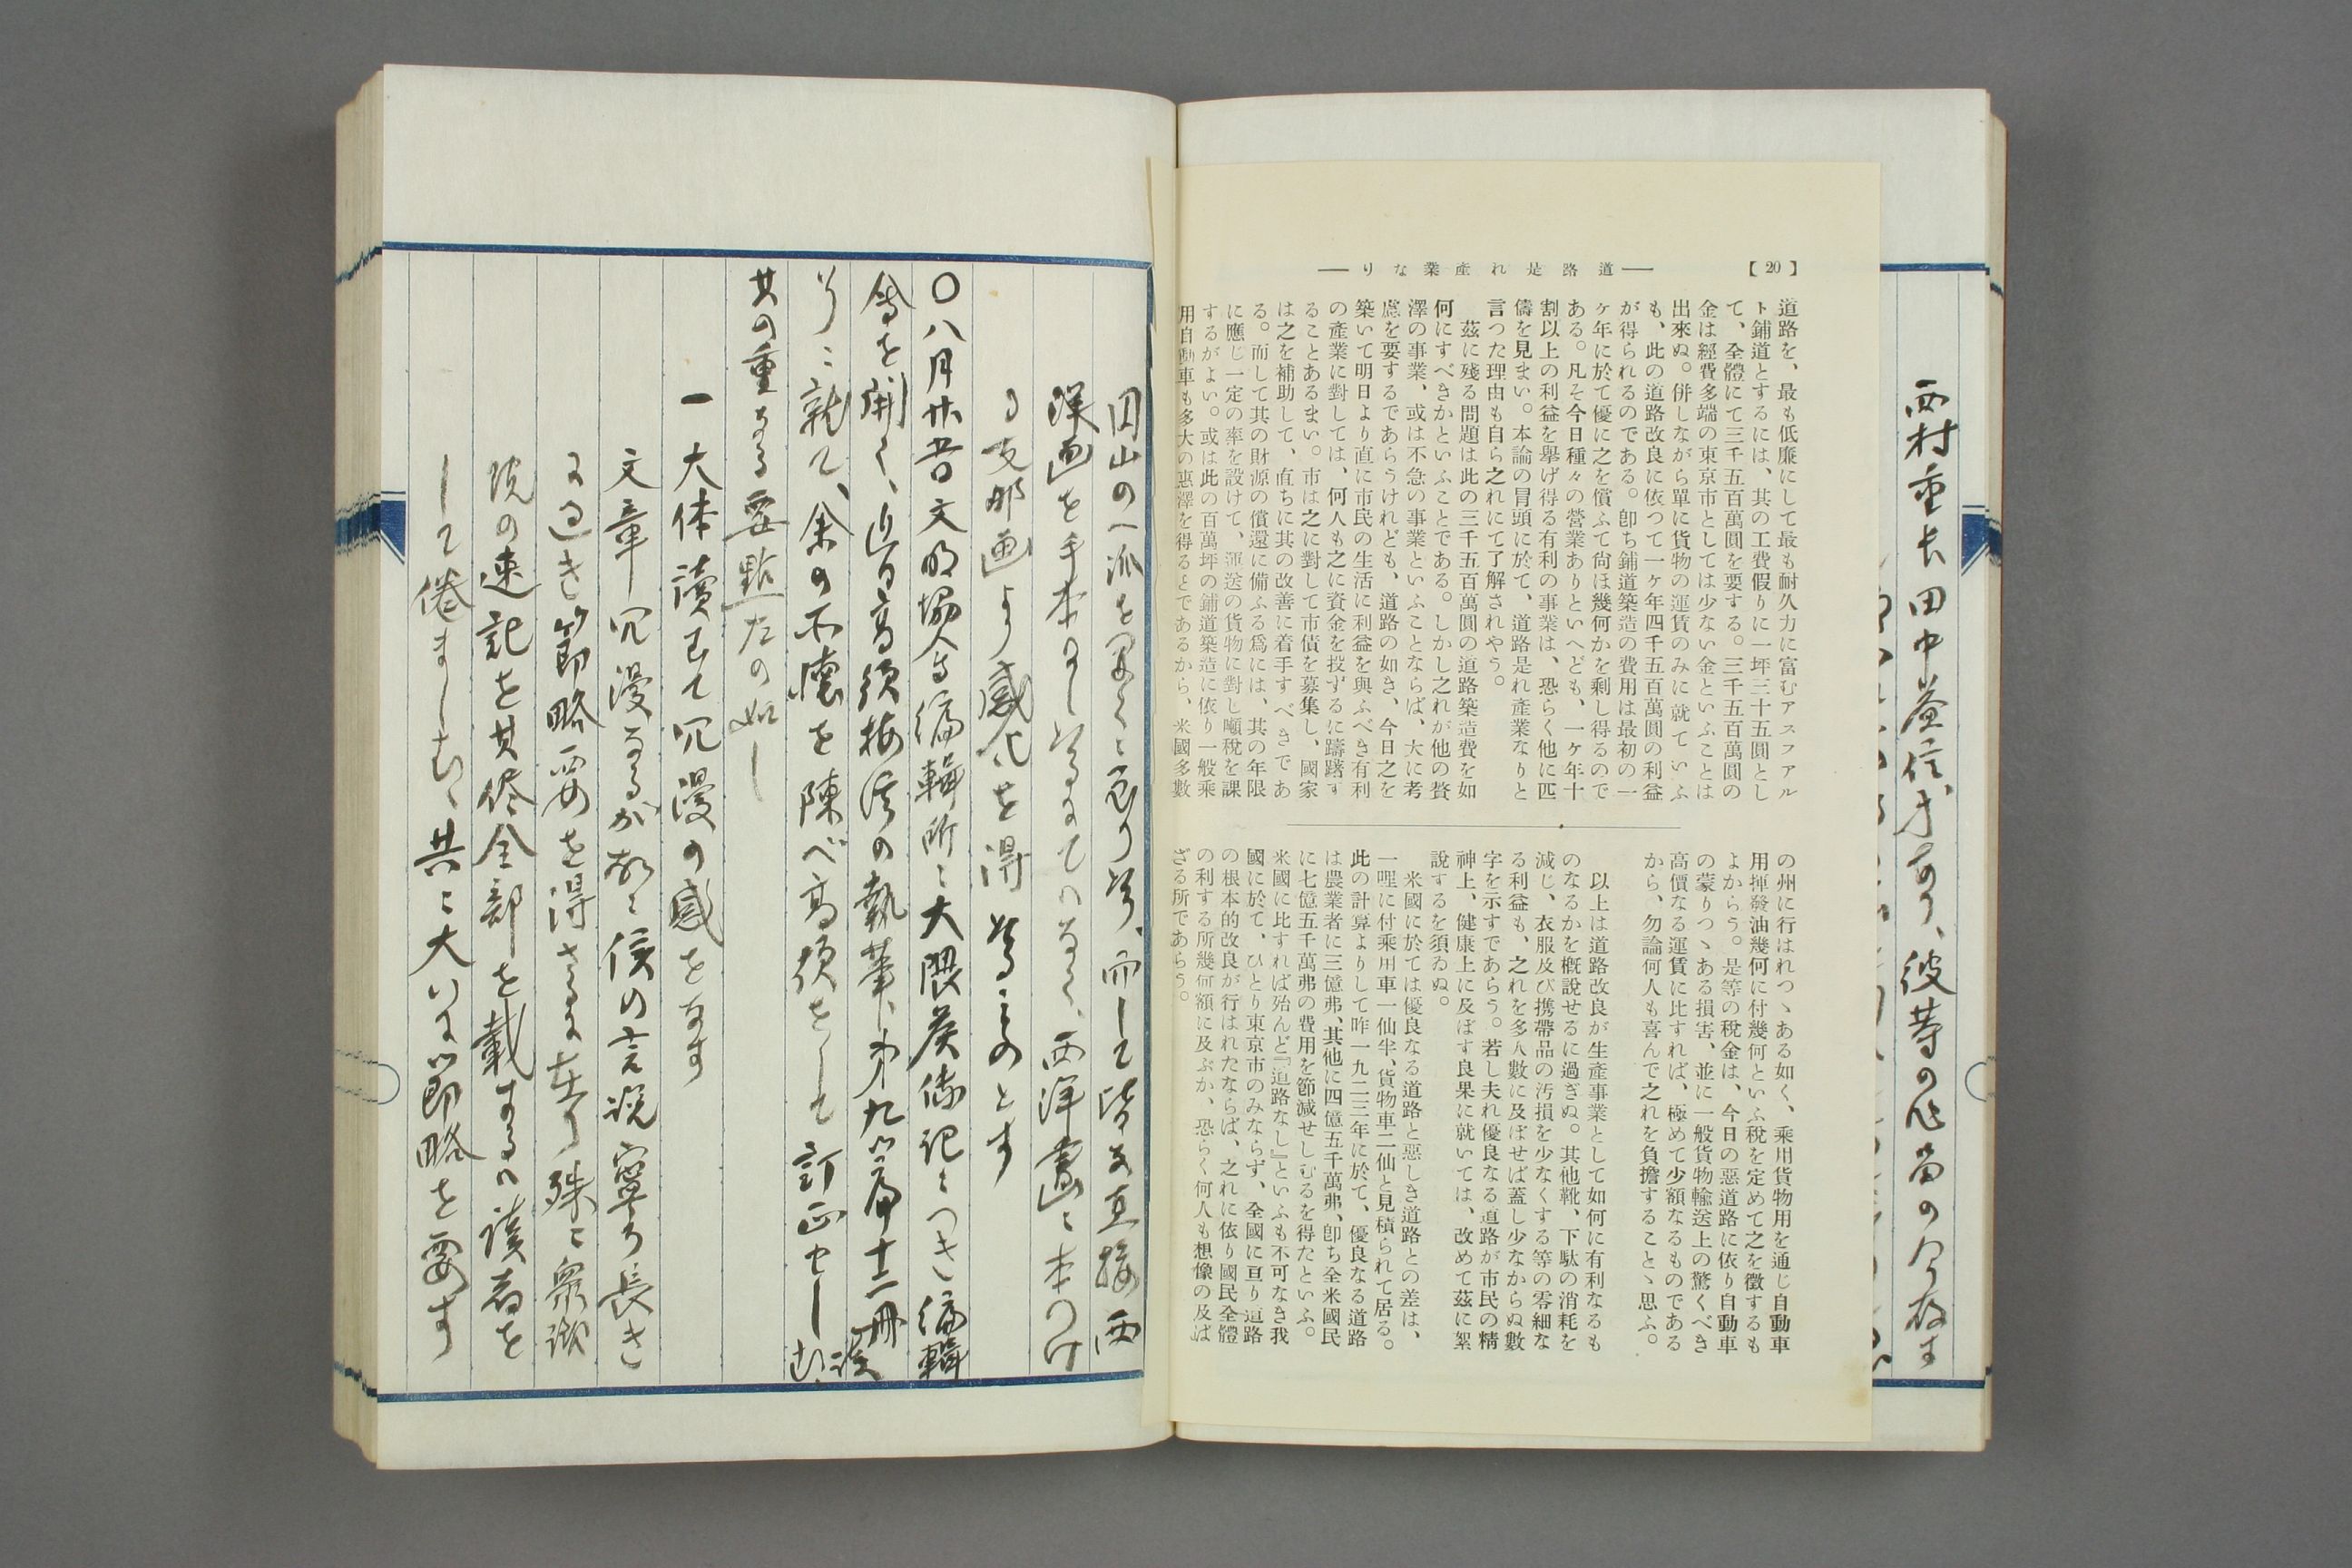 西村重長田中益信、才あり、彼等の作品の今存す
【20】
――道路是れ產業なり――
道路を、最も低廉にして最も耐久力に富むアスフアル
ト鋪道とするには、其の工費假りに一坪三十五圓とし
て、全體にて三千五百萬圓を要する。三千五百萬圓の
金は經費多端の東京市としては少ない金といふことは
出來ぬ。併しながら單に貨物の運賃のみに就ていふ
も、此の道路改良に依つて一ヶ年四千五百萬圓の利益
が得られるのである。卽ち鋪道築造の費用は最初の一
ヶ年に於て優に之を償ふて尙ほ幾何かを剩し得るので
ある。凡そ今日種々の營業ありといへども、一ヶ年十
割以上の利益を擧げ得る有利の事業は、恐らく他に匹
儔を見まい。本論の冒頭に於て、道路是れ產業なりと
言つた理由も自ら之れにて了解されやう。
茲に殘る問題は此の三千五百萬圓の道路築造費を如
何にすべきかといふことである。しかし之れが他の贅
澤の事業、或は不急の事業といふことならば、大に考
慮を要するであらうけれども、道路の如き、今日之を
築いて明日より直に市民の生活に利益を與ふべき有利
の產業に對しては、何人も之に資金を投ずるに躊躇す
ることあるまい。市は之に對して市債を募集し、國家
は之を補助して、直ちに其の改善に着手すべきであ
る。而して其の財源の償還に備ふる爲には、其の年限
に應じ一定の率を設けて、運送の貨物に對し噸稅を課
するがよい。或は此の百萬坪の鋪道築造に依り一般乘
用自動車も多大の惠澤を得るとであるから、米國多數
の州に行はれつゝある如く、乘用貨物用を通じ自動車
用揮發油幾何に付幾何といふ稅を定めて之を徵するも
よからう。是等の稅金は、今日の惡道路に依り自動車
の蒙りつゝある損害、並に一般貨物輸送上の驚くべき
高價なる運賃に比すれば、極めて少額なるものである
から、勿論何人も喜んで之れを負擔することゝ思ふ。
以上は道路改良が生產事業として如何に有利なるも
のなるかを槪說せるに過ぎぬ。其他靴、下駄の消耗を
減じ、衣服及び携帶品の汚損を少なくする等の零細な
る利益も、之れを多人數に及ぼせば蓋し少なからぬ數
字を示すであらう。若し夫れ優良なる道路が市民の精
神上、健康上に及ぼす良果に就いては、改めて茲に絮
說するを須ゐぬ。
米國に於ては優良なる道路と惡しき道路との差は、
一哩に付乘用車一仙半、貨物車二仙と見積られて居る。
此の計算よりして昨一九二三年に於て、優良なる道路
は農業者に三億弗、其他に四億五千萬弗、卽ち全米國民
に七億五千萬弗の費用を節減せしむるを得たといふ。
米國に比すれば殆んど『道路なし』といふも不可なき我
國に於て、ひとり東京市のみならず、全國に亘り道路
の根本的改良が行はれたならば、之れに依り國民全體
の利する所幾何額に及ぶか、恐らく何人も想像の及ば
ざる所であらう。
円山の一派を

而して皆な直接西
洋画を手本

西洋畫に本つけ
る支那画より感化を得

とす
〇八月廿

日文明協会編輯所に大隈侯傳記につき編輯
會を開く、

高須

の執筆、第九篇十二冊

に就て、余の不懷を陳べ高須をして訂正せしむ、
其の重なる要點左の如し
一大体讀て冗漫の感をなす
文章冗漫なるが

侯の言說

長き
に過き節略要を得

殊に衆議
院の速記を其儘全部を載するハ讀者を
して倦ましむ、共に大いに節略を要す